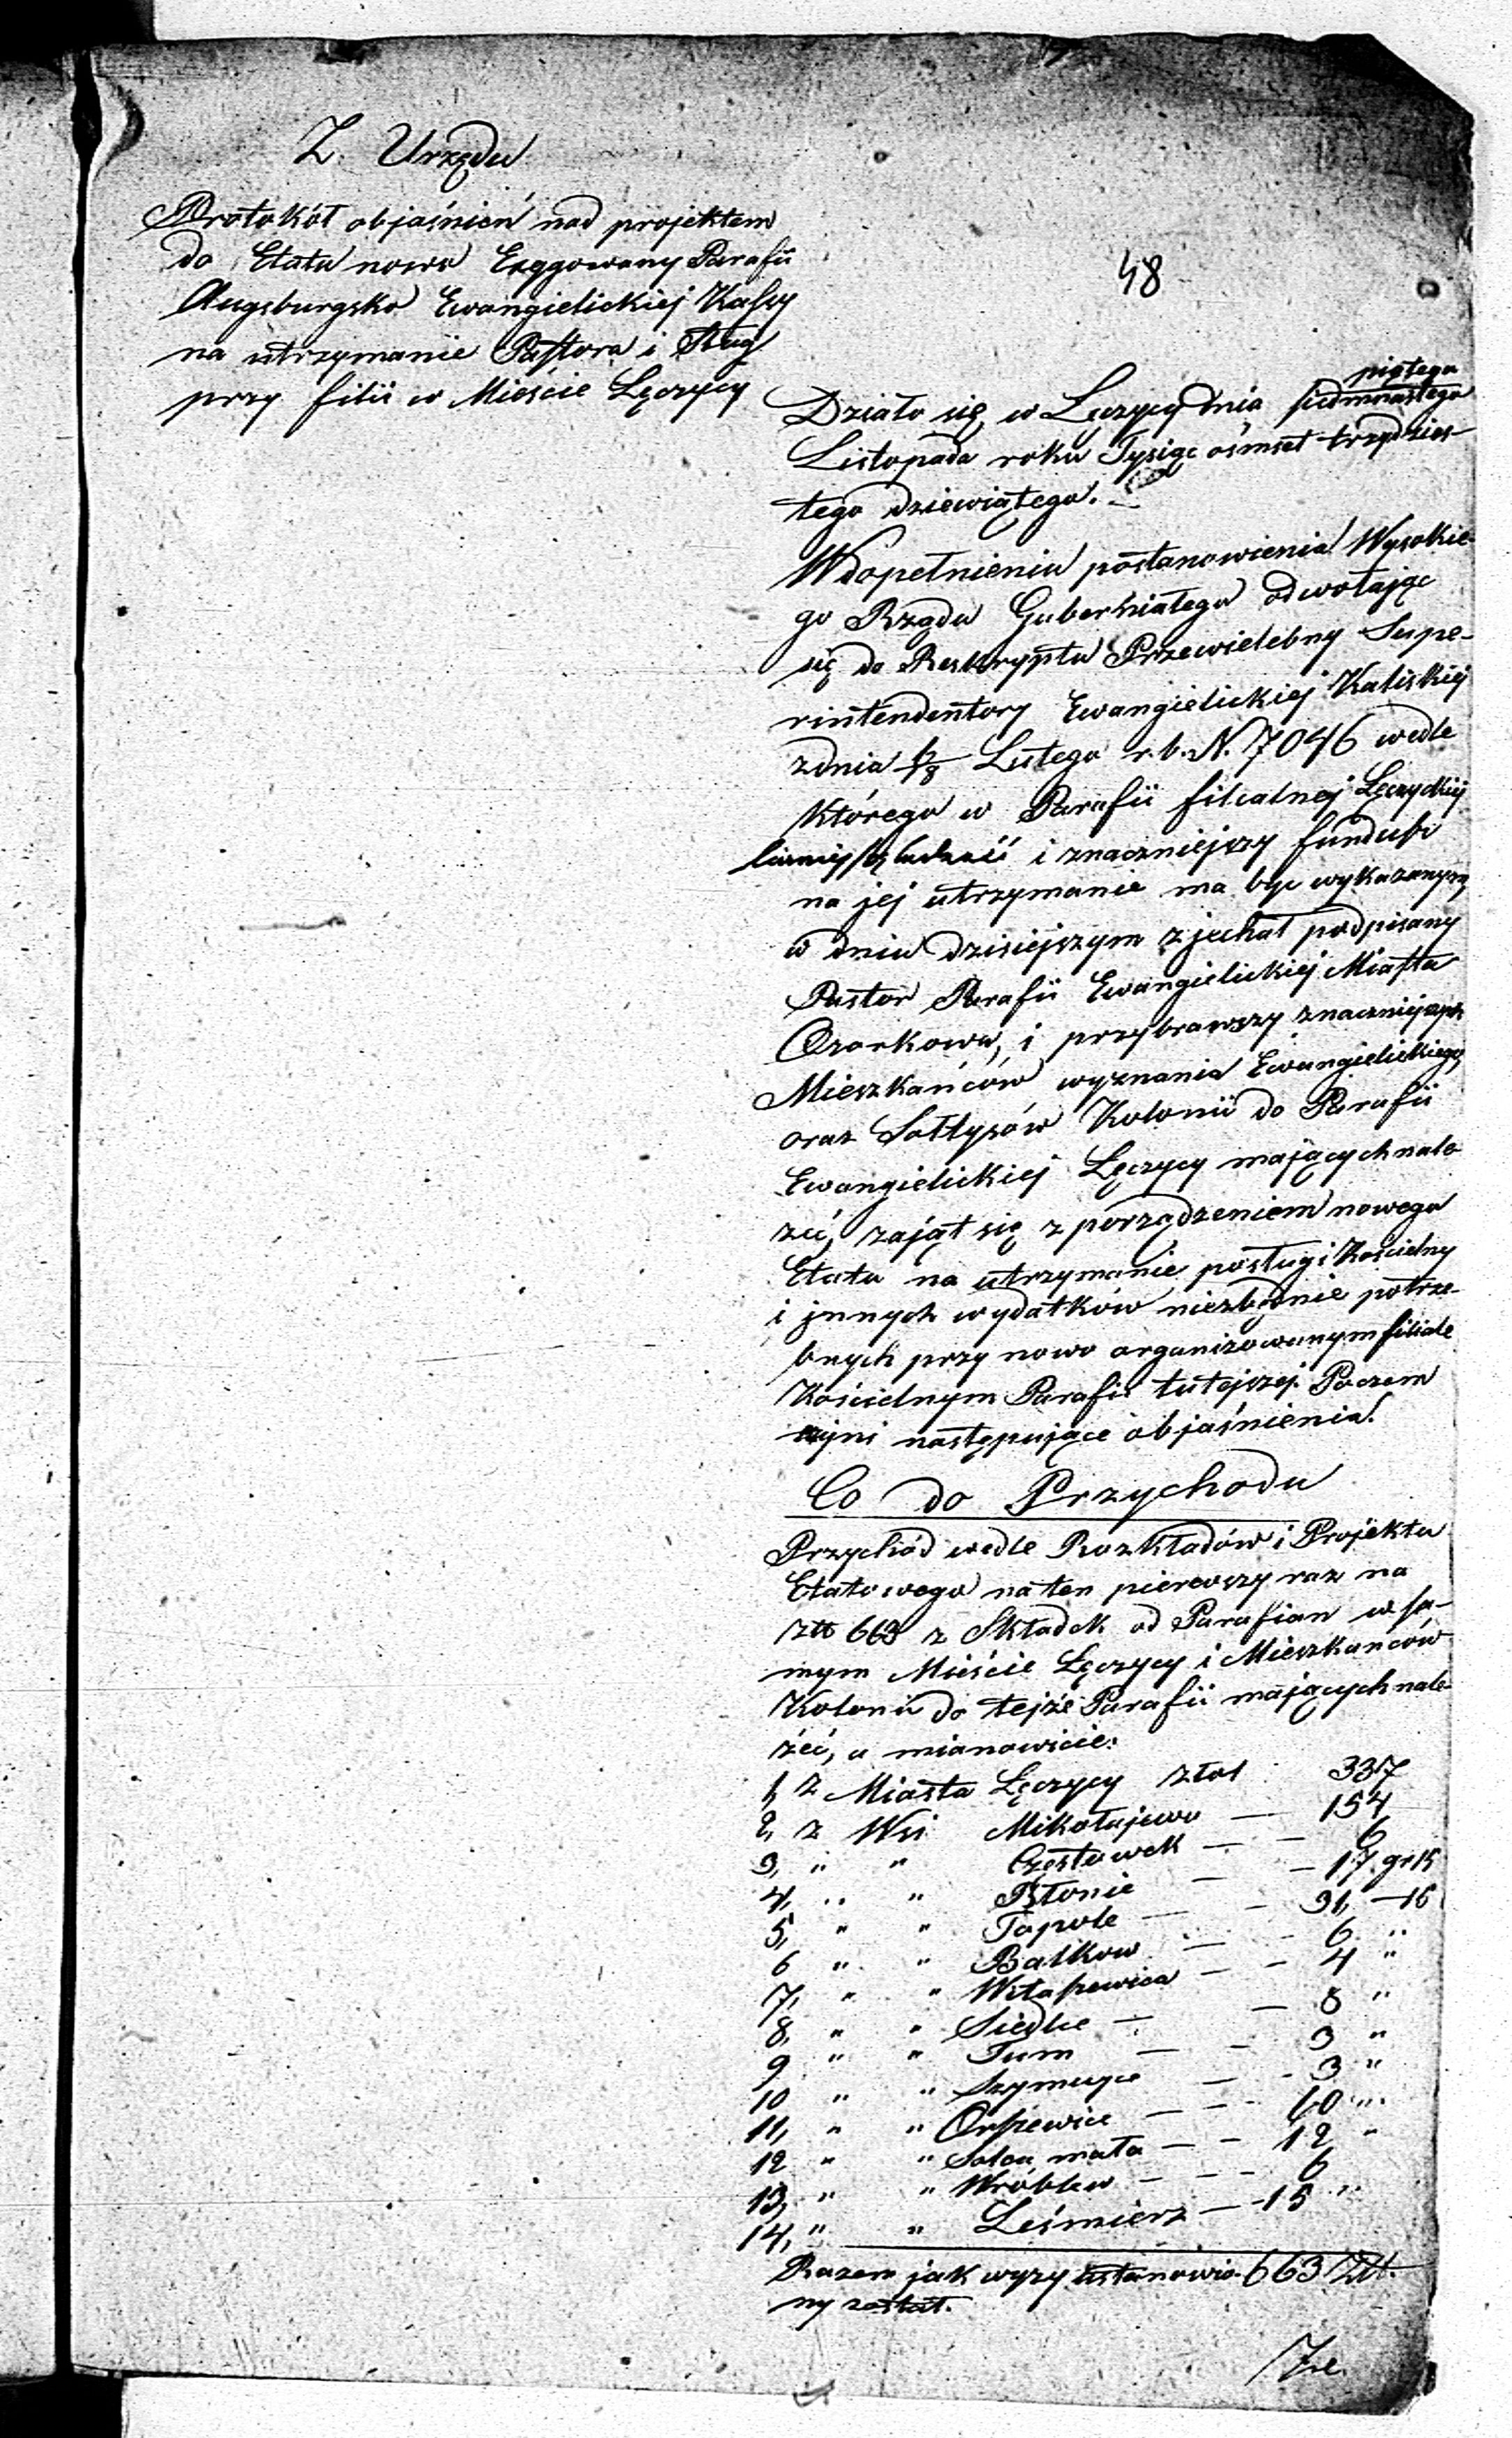 Z Urzędu
Protokół objaśnień nad projektem
do Etatu nowo Erygowany Parafii
Augsburgsko Ewangielickiej Kassy
na utrzymanie Pastora i Sług
przy filii w Mieście Łęczycy
48
piątego
Działo się w Łęczycy dnia siedmnastego
Listopada roku Tysiąc ośmset trzydzies-
tego dziewiątego.
W dopełnieniu postanowienia Wysokie-
go Rządu Gubernialego odwołając
się do Reskryptu Przewielebny Supe-
rintendentory Ewangielickiej Kaliskiej
z dnia Lutego r. b. N. 7046 wedle
którego w Parafii filialnej Łęczyckiej
liczniejszą ludność i znaczniejszy fundusz
na jej utrzymanie ma być wykazanym,
w dniu dzisiejszym zjechał podpisany
Pastor Parafii Ewangielickiej Miasta
Ozorkowa, i przybrawszy znaczniejszych
Mieszkańców wyznania Ewangielickiego,
oraz Sołtysów Kolonii do Parafii
Ewangielickiej Łęczycy mających nale
żeć, zajął się z porządzeniem nowego
Etatu na utrzymanie posługi Kościelny
i jnnych wydatków niezbędnie potrze-
bnych przy nowo organizowanym filiale
Kościelnym Parafii tutejszej. Poczem
czyni następujące objaśnienia.
Co do Przychodu
Przychód wedle Rozkładów i Projektu
Etatowego na ten pierwszy raz na
złt 663 z Składek od Parafian w sa-
mym Mieście Łęczycy i Mieszkańców
Kolonii do tejże Parafii mających nale-
żeć, a mianowicie:
1, z Miasta Łęczycy złot 337
2, z Wsi Mikołajewo — 154
3, " " Czestawek — 6
4, " " Błonie — 17 gr 15
5, " " Topole — 31, — 15
6 " " Balkow — 6 "
7, " " Witaszewica — 4 "
8, " " Siedlce — 8 "
9 " " Tum — 3 "
10 " " Szymczyce — 3 "
11, " " Orszewice — 60 "
12 " " Solca mała — 12 "
13, " " Wróblew — 6
14, " " Leśmierz — 15 "
Razem jak wyzy ustanowio- 663 Złt.
ny został.
Ze